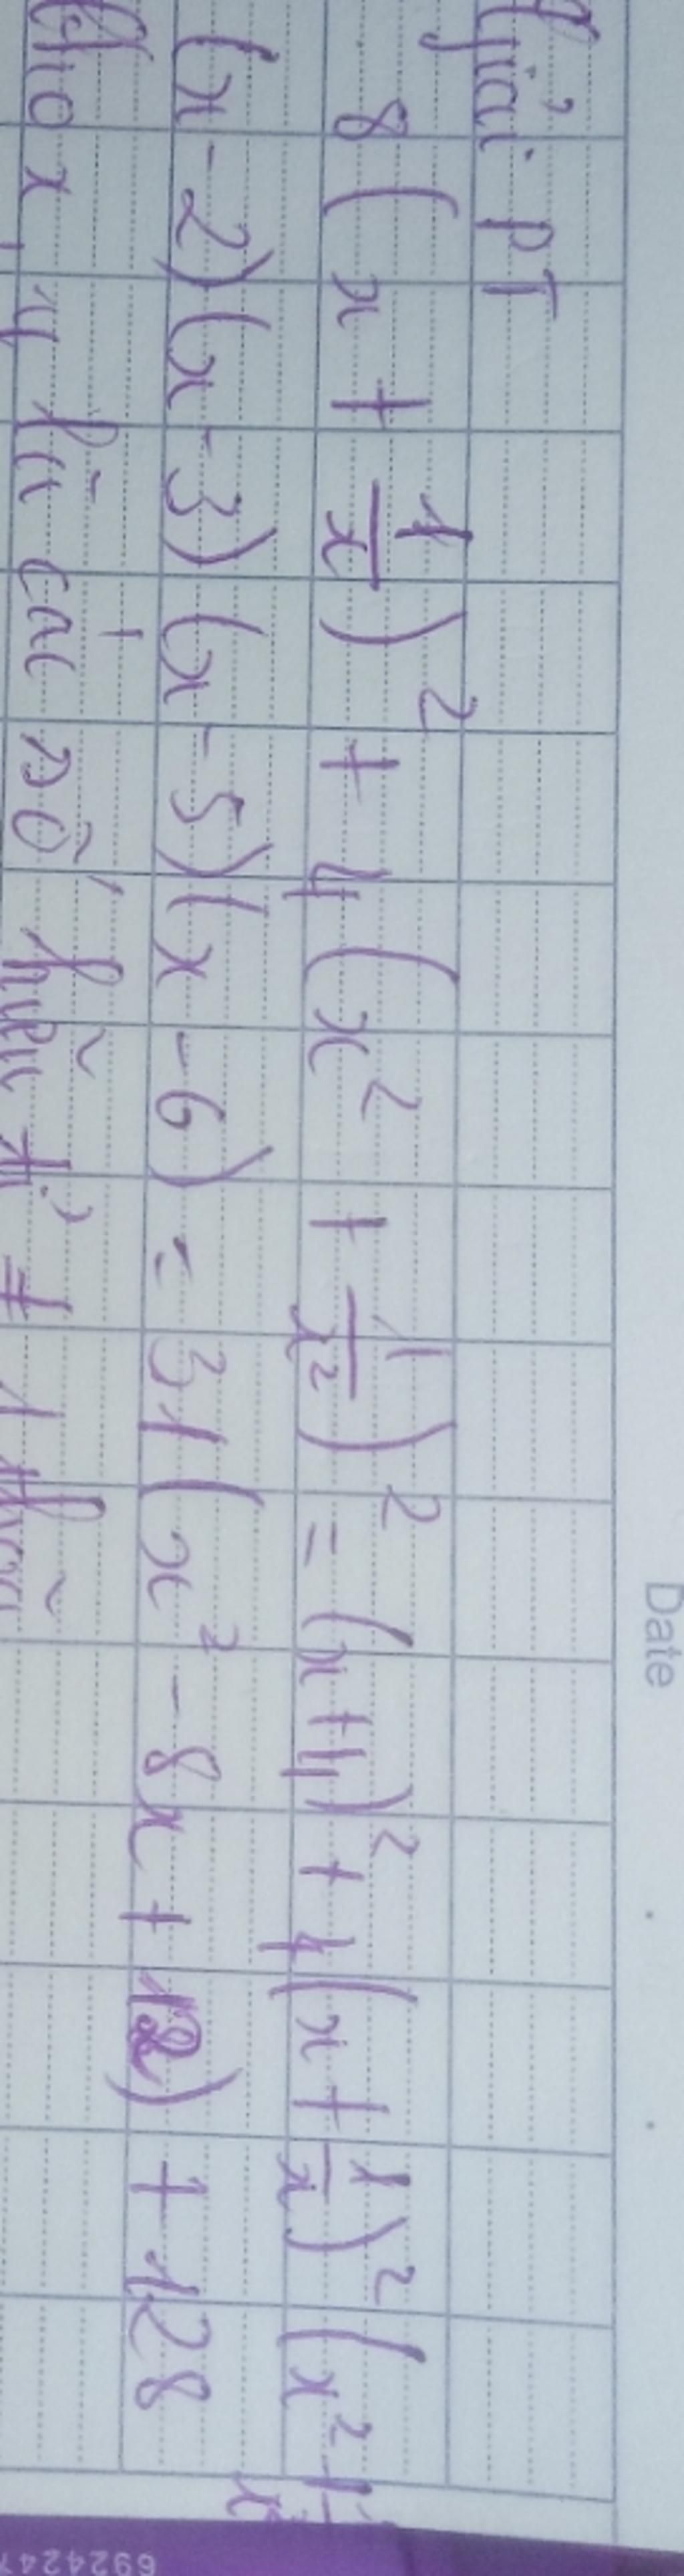 Date
Giải pT
8(x + 1/x)² + 4(x² + 1/x²)² = (x+4)² + 4(x + 1/x)² (x² +
(x-2)(x-3)(x-5)(x-6) = 31(x² - 8x + 12) + 128
Cho x, y là các số hữu tỉ ≠ 1 thoã
6924247